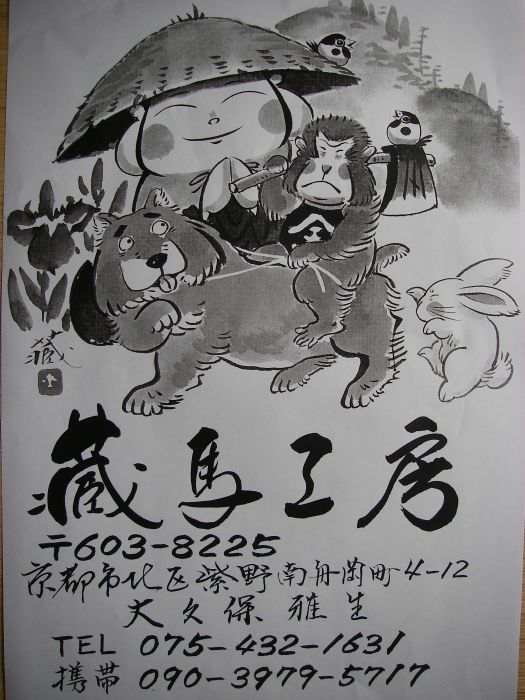 金
蔵
蔵馬工房
〒603-8225
京都市北区紫野南舟岡町4-12
大久保雅生
TEL 075-432-1631
携帯 090-3979-5717